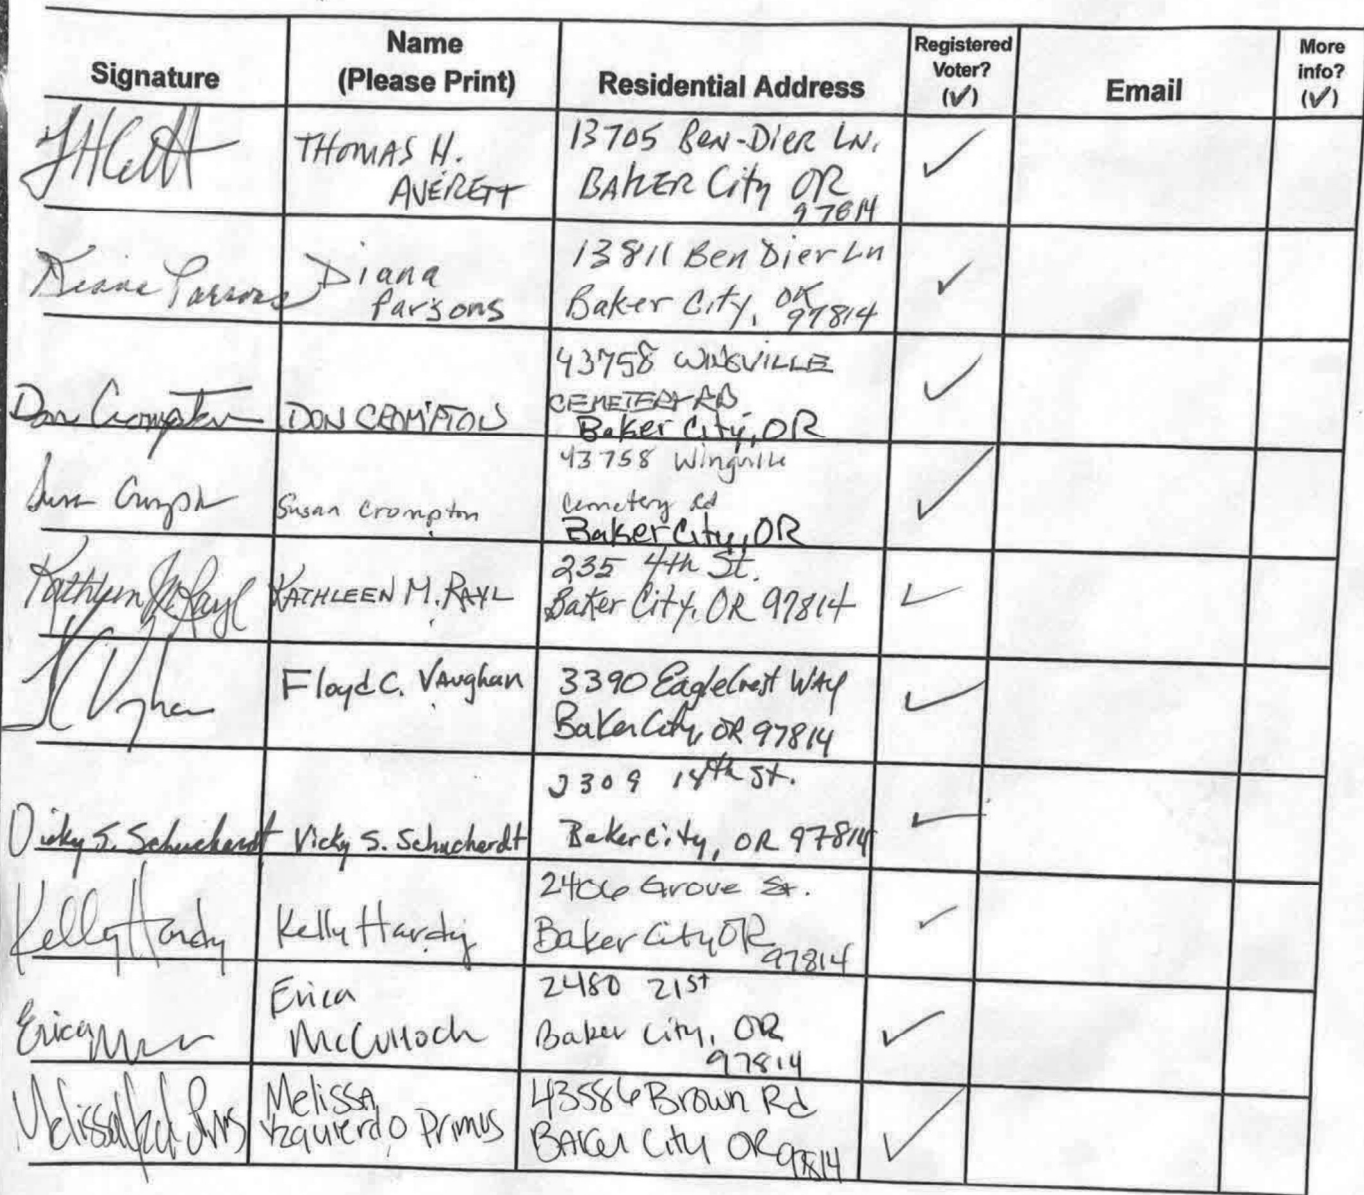 Signature
Name
(Please Print)
Residential Address
Registered
Voter?
(✓)
Email
More
info?
(✓)
THOMAS H.
AVERETT
13705 BEN-DIER LN.
BAKER City OR
97814
✓
Diane Parsons
Diana
Parsons
13811 Ben Dier Ln
Baker City, OR
97814
✓
Don Crompton
DON CROMPTON
43758 WINGVILLE
CEMETERY RD.
Baker City, OR
✓
Susan Crompton
43758 Wingville
Cemetery Rd
Baker City, OR
✓
Kathleen M. Rayl
KATHLEEN M. RAYL
235 4th St.
Baker City, OR 97814
✓
Floyd C. Vaughan
3390 EagleCrest WAY
Baker City, OR 97814
✓
Vicky S. Schuchardt
Vicky S. Schuchardt
2309 14th St.
Baker City, OR 97814
✓
Kelly Hardy
Kelly Hardy
2406 Grove St.
Baker City OR
97814
✓
Erica
Erica
McCulloch
2480 21st
Baker City, OR
97814
✓
Melissa
Melissa
Izquierdo Primus
43586 Brown Rd
BAKer City OR 97814
✓